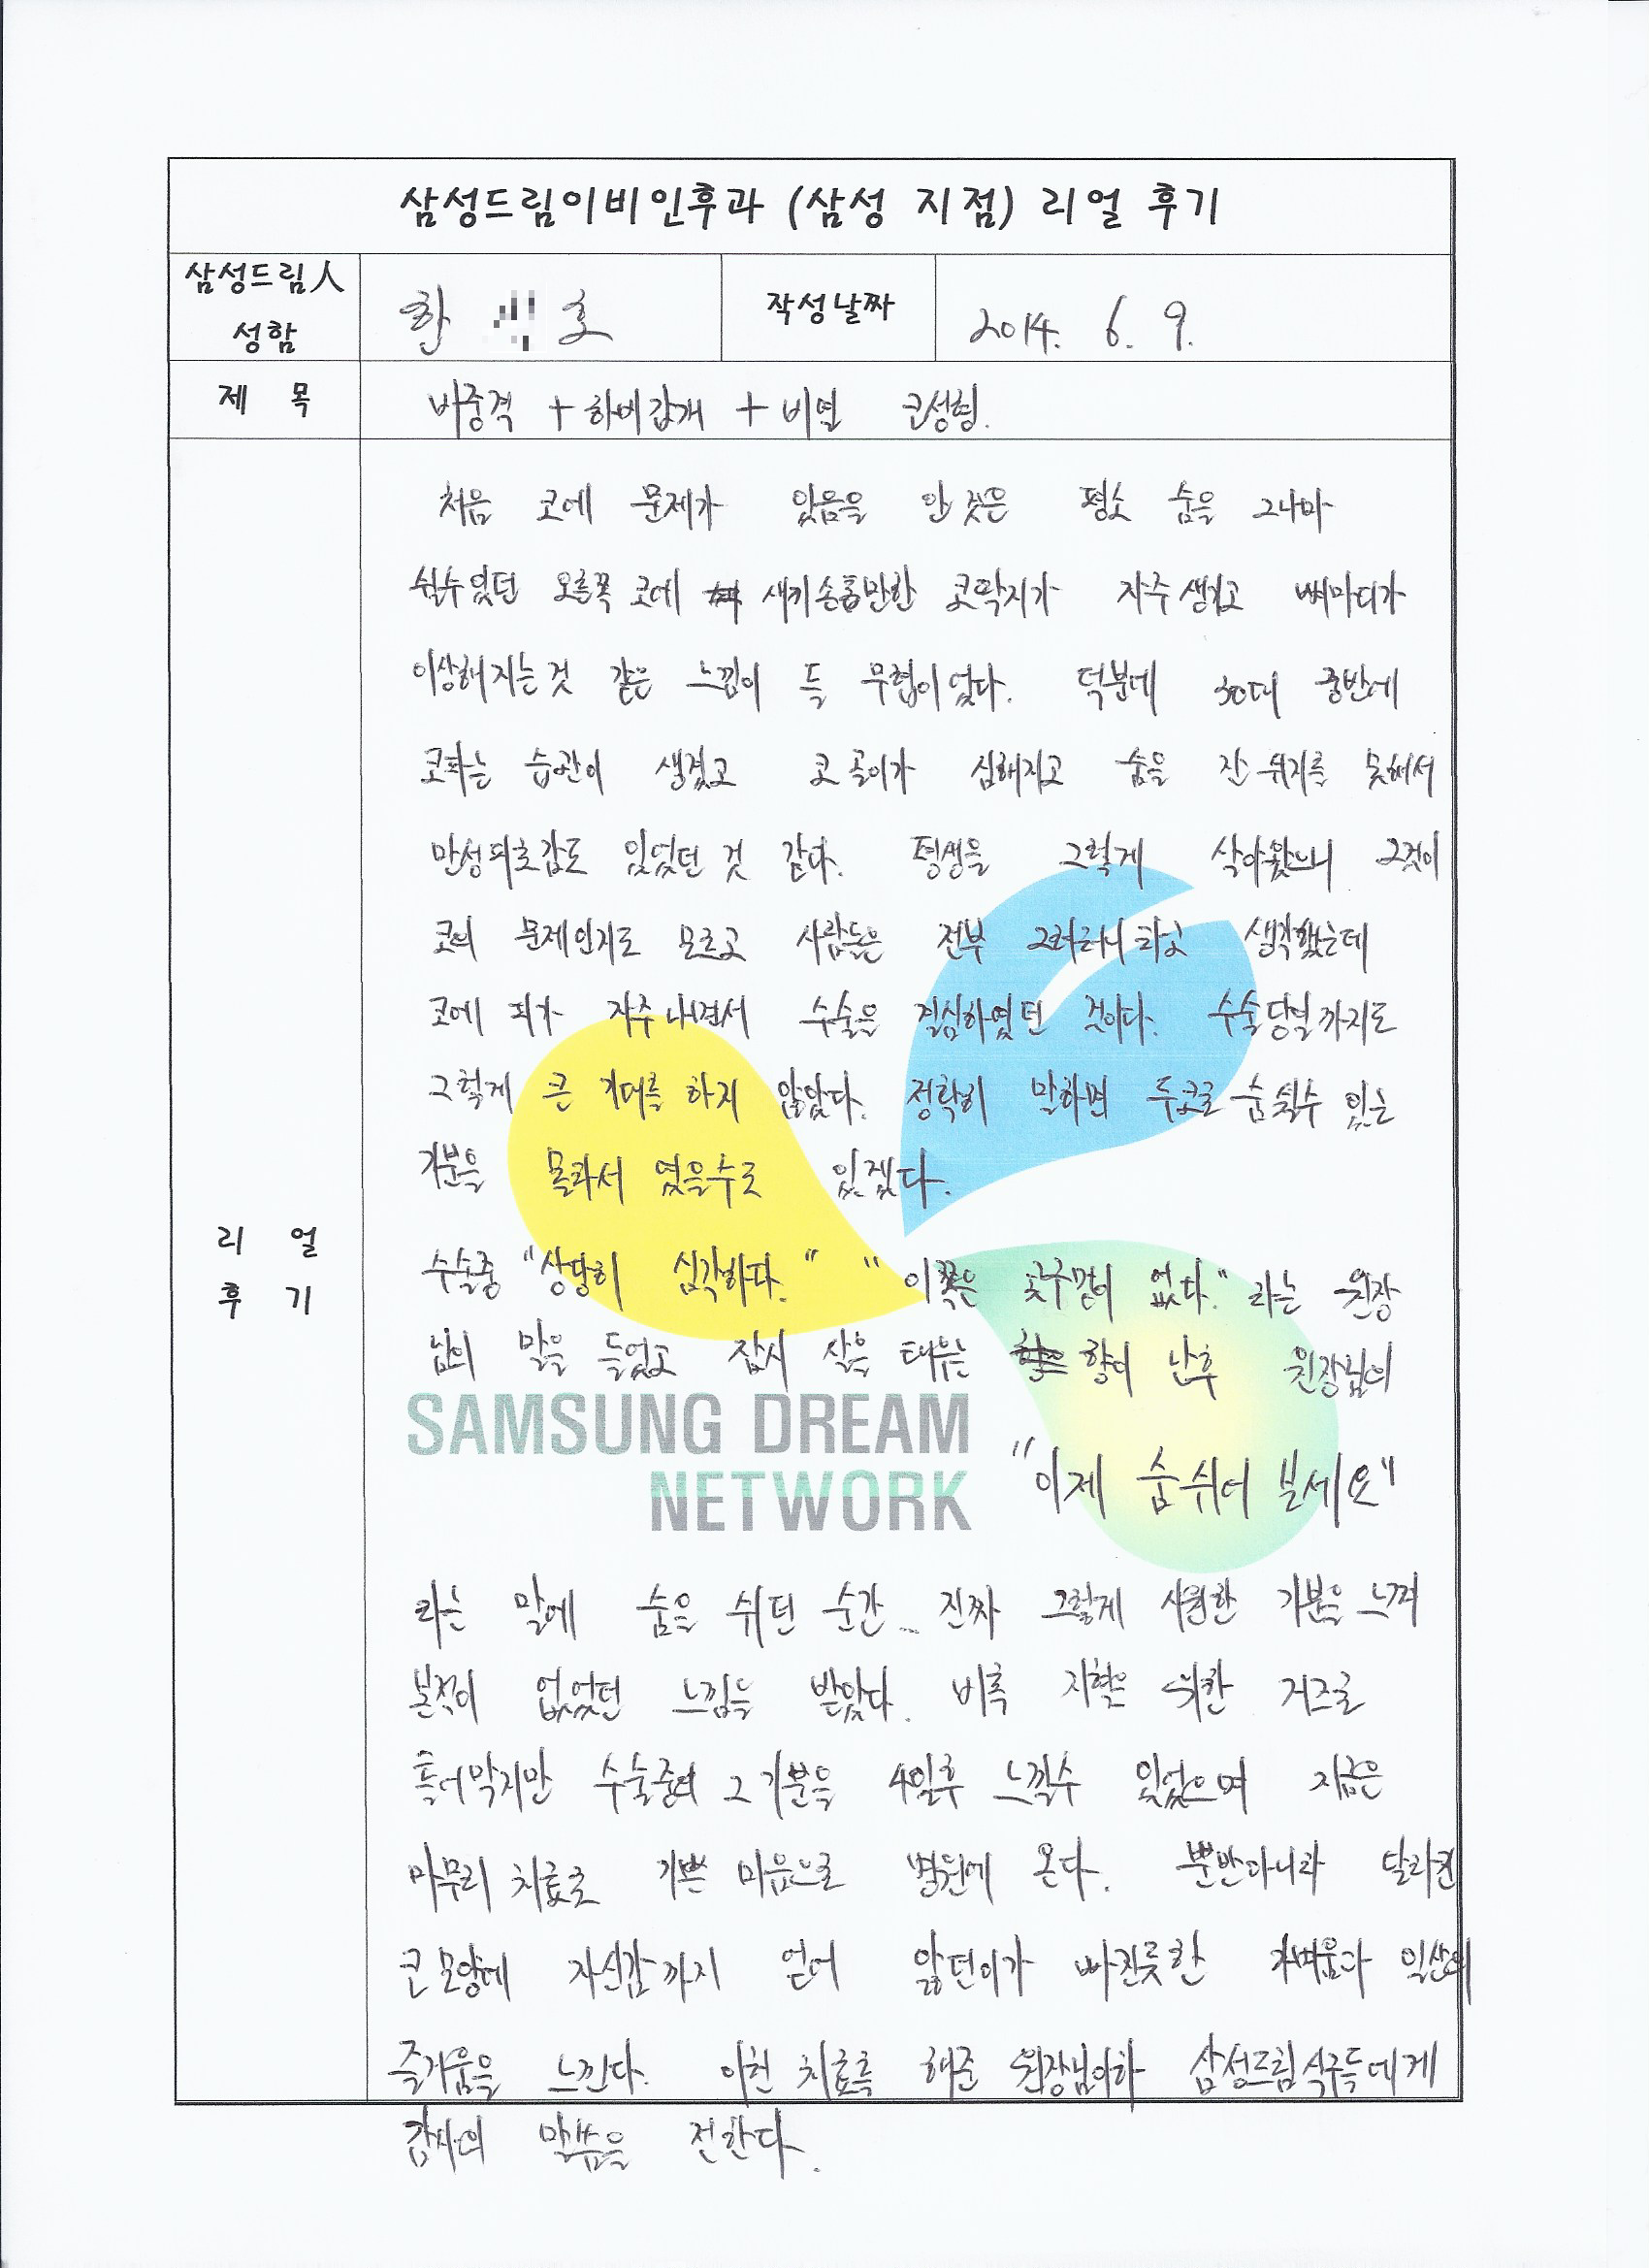 삼성드림이비인후과 (삼성 지점) 리얼 후기
삼성드림人
성함
한 호
작성날짜
2014. 6. 9.
제 목
비중격 + 하비갑개 + 비밸 코성형.
리 얼
후 기
처음 코에 문제가 있음을 안 것은 평소 숨을 그나마
쉴수있던 오른쪽 코에 새끼손톱만한 코딱지가 자주 생기고 뼈마디가
이상해지는것 같은 느낌이 들 무렵이었다. 덕분에 30대 중반에
코파는 습관이 생겼고 코골이가 심해지고 숨을 잔 쉬지를 못해서
만성피로감도 있었던 것 같다. 평생을 그렇게 살아왔으니 그것이
코의 문제인지도 모르고 사람들은 전부 그러려니 하고 생각했는데
코에 피가 자주 나면서 수술을 결심하였던 것이다. 수술당일까지도
그렇게 큰 기대를 하지 않았다. 정확히 말하면 두코로 숨쉴수 있는
기분을 몰라서 였을수도 있겠다.
수술중 "상당히 심각하다." "이쪽은 콧구멍이 없다." 라는 원장
님의 말을 들었고 잠시 살을 태우는 향이 난후 원장님의
"이제 숨쉬어 보세요"
라는 말에 숨을 쉬던 순간... 진짜 그렇게 시원한 기분을 느껴
본적이 없었던 느낌을 받았다. 비록 지혈을 위한 거즈로
틀어막지만 수술중의 그 기분을 4일후 느낄수 있었으며 지금은
마무리 치료로 기쁜 마음으로 병원에 온다. 뿐만아니라 달라진
코모양에 자신감까지 얻어 앓던이가 빠진듯한 가벼움과 일상의
즐거움을 느낀다. 이런 치료를 해준 원장님이하 삼성드림식구들에게
감사의 말씀을 전한다.
SAMSUNG DREAM
NETWORK